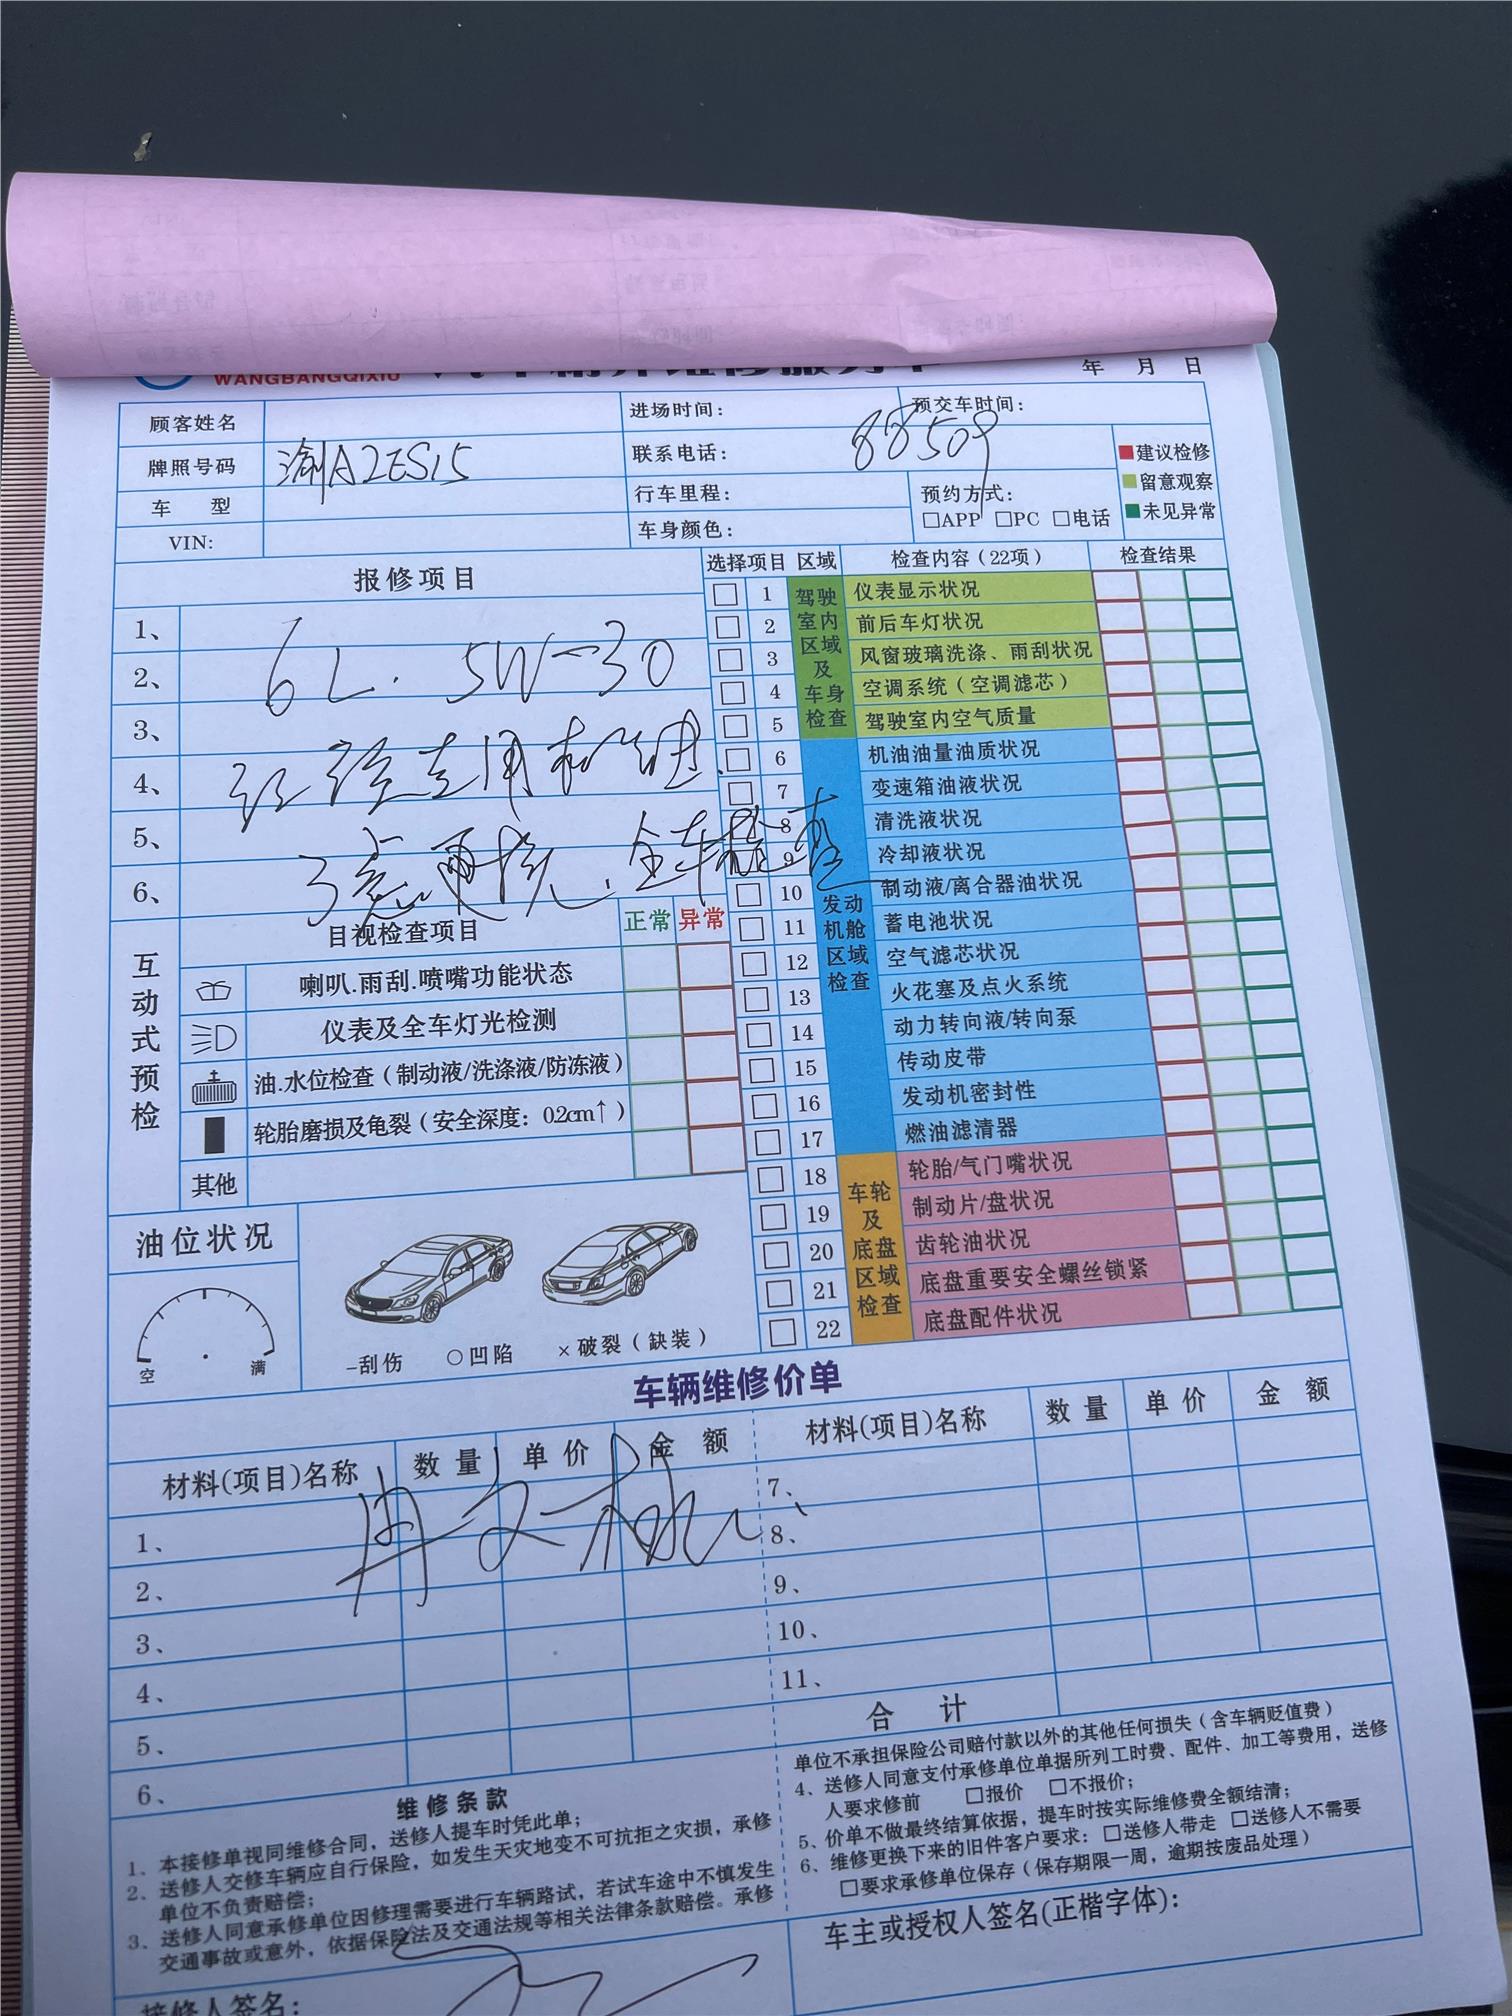 WANGBANGQIXIU
年 月 日
顾客姓名
进场时间：
预交车时间：
牌照号码
渝A2ES15
联系电话：
88509
车 型
行车里程：
预约方式：
□APP □PC □电话
VIN:
车身颜色：
建议检修
留意观察
未见异常
报修项目
1、
2、
3、
4、
5、
6、
6L. 5W-30
专用机油
三滤更换. 全车检查
选择项目 区域 检查内容（22项） 检查结果
驾驶室内区域及车身检查
1 仪表显示状况
2 前后车灯状况
3 风窗玻璃洗涤、雨刮状况
4 空调系统（空调滤芯）
5 驾驶室内空气质量
发动机舱区域检查
6 机油油量油质状况
7 变速箱油液状况
8 清洗液状况
9 冷却液状况
10 制动液/离合器油状况
11 蓄电池状况
12 空气滤芯状况
13 火花塞及点火系统
14 动力转向液/转向泵
15 传动皮带
16 发动机密封性
17 燃油滤清器
车轮及底盘区域检查
18 轮胎/气门嘴状况
19 制动片/盘状况
20 齿轮油状况
21 底盘重要安全螺丝锁紧
22 底盘配件状况
互动式预检
目视检查项目 正常 异常
喇叭.雨刮.喷嘴功能状态
仪表及全车灯光检测
油.水位检查（制动液/洗涤液/防冻液）
轮胎磨损及龟裂（安全深度：0.2cm↑）
其他
油位状况
空 满
-刮伤 ○凹陷 ×破裂（缺装）
车辆维修价单
材料(项目)名称 数 量 单 价 金 额
材料(项目)名称 数 量 单 价 金 额
冉文
1、
2、
3、
4、
5、
6、
7、
8、
9、
10、
11、
合 计
维修条款
1、本接修单视同维修合同，送修人提车时凭此单；
2、送修人交修车辆应自行保险，如发生天灾地变不可抗拒之灾损，承修
单位不负责赔偿；
3、送修人同意承修单位因修理需要进行车辆路试，若试车途中不慎发生
交通事故或意外，依据保险法及交通法规等相关法律条款赔偿。承修
单位不承担保险公司赔付款以外的其他任何损失（含车辆贬值费）
4、送修人同意支付承修单位单据所列工时费、配件、加工等费用，送修
人要求修前 □报价 □不报价；
5、价单不做最终结算依据，提车时按实际维修费全额结清；
6、维修更换下来的旧件客户要求：□送修人带走 □送修人不需要
□要求承修单位保存（保存期限一周，逾期按废品处理）
接修人签名：
车主或授权人签名(正楷字体)：